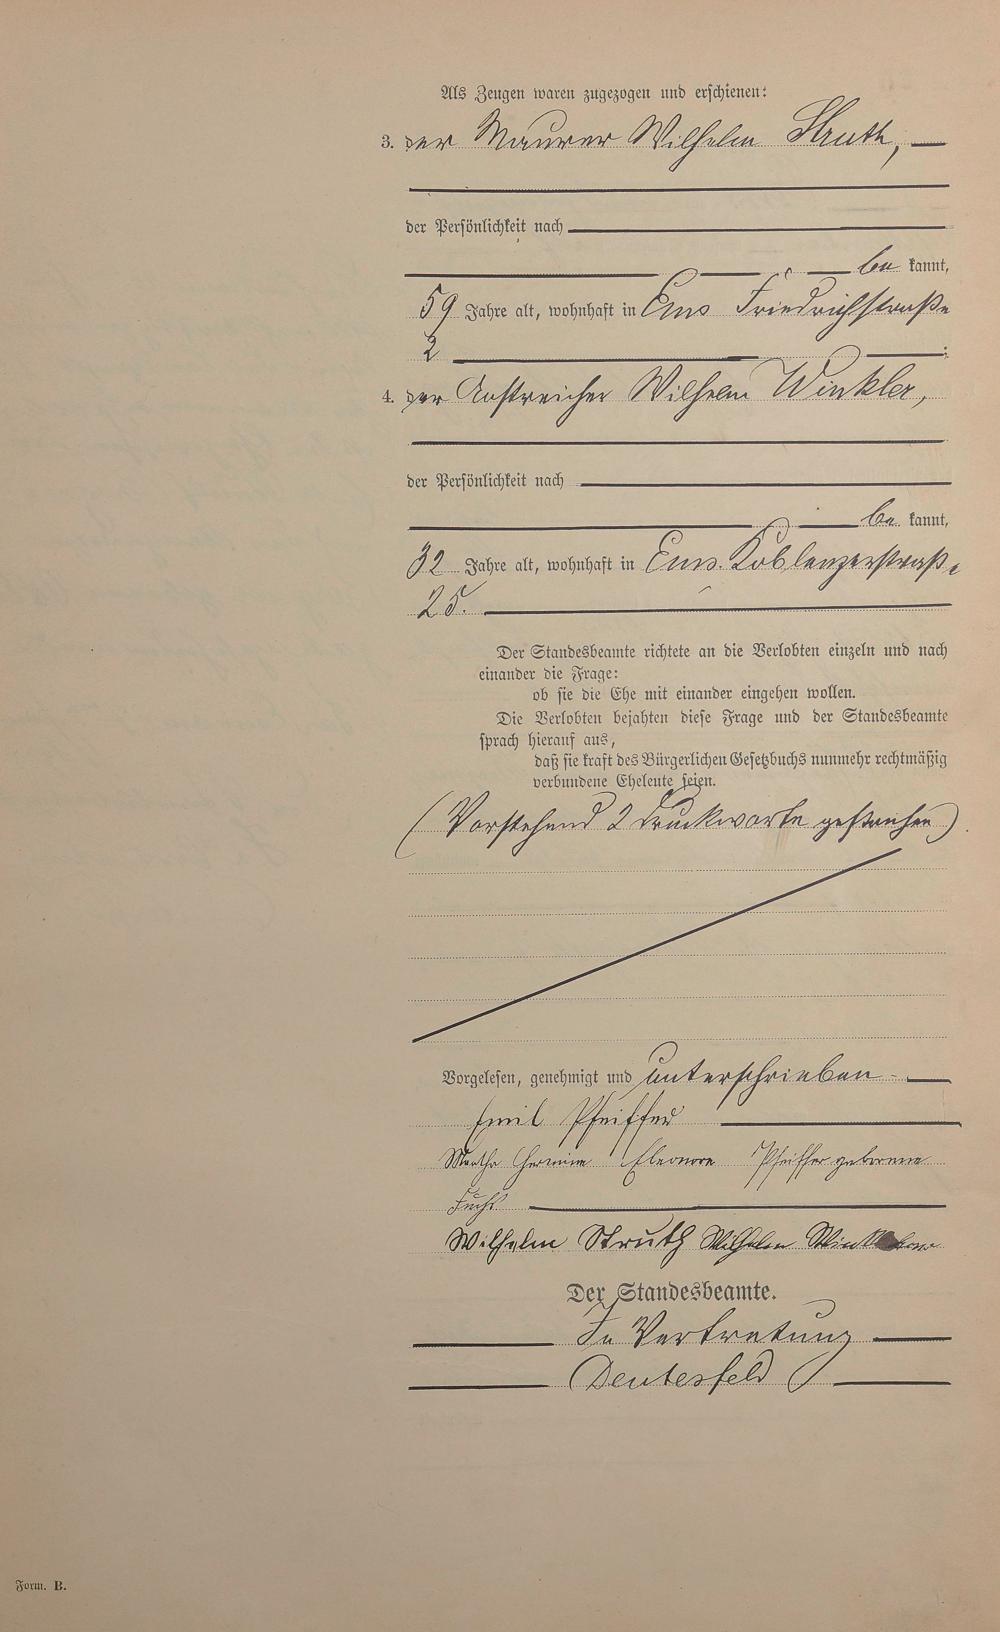 Als Zeugen waren zugezogen und erschienen:
3. der Maurer Wilhelm Struth,
der Persönlichkeit nach
be kannt,
59 Jahre alt, wohnhaft in Ems Friedrichstraße
2
4. der Anstreicher Wilhelm Winkler,
der Persönlichkeit nach
be kannt,
32 Jahre alt, wohnhaft in Ems. Koblenzerstraße
25.
Der Standesbeamte richtete an die Verlobten einzeln und nach
einander die Frage:
ob sie die Ehe mit einander eingehen wollen.
Die Verlobten bejahten diese Frage und der Standesbeamte
sprach hierauf aus,
daß sie kraft des Bürgerlichen Gesetzbuchs nunmehr rechtmäßig
verbundene Eheleute seien.
(Vorstehend 2 Druckworte gestrichen)
Vorgelesen, genehmigt und unterschrieben
Emil Pfeiffer
Martha Hermine Eleonore Pfeiffer geborene
Fuchs
Wilhelm Struth Wilhelm
Der Standesbeamte.
In Vertretung
Deutesfeld
Form. B.